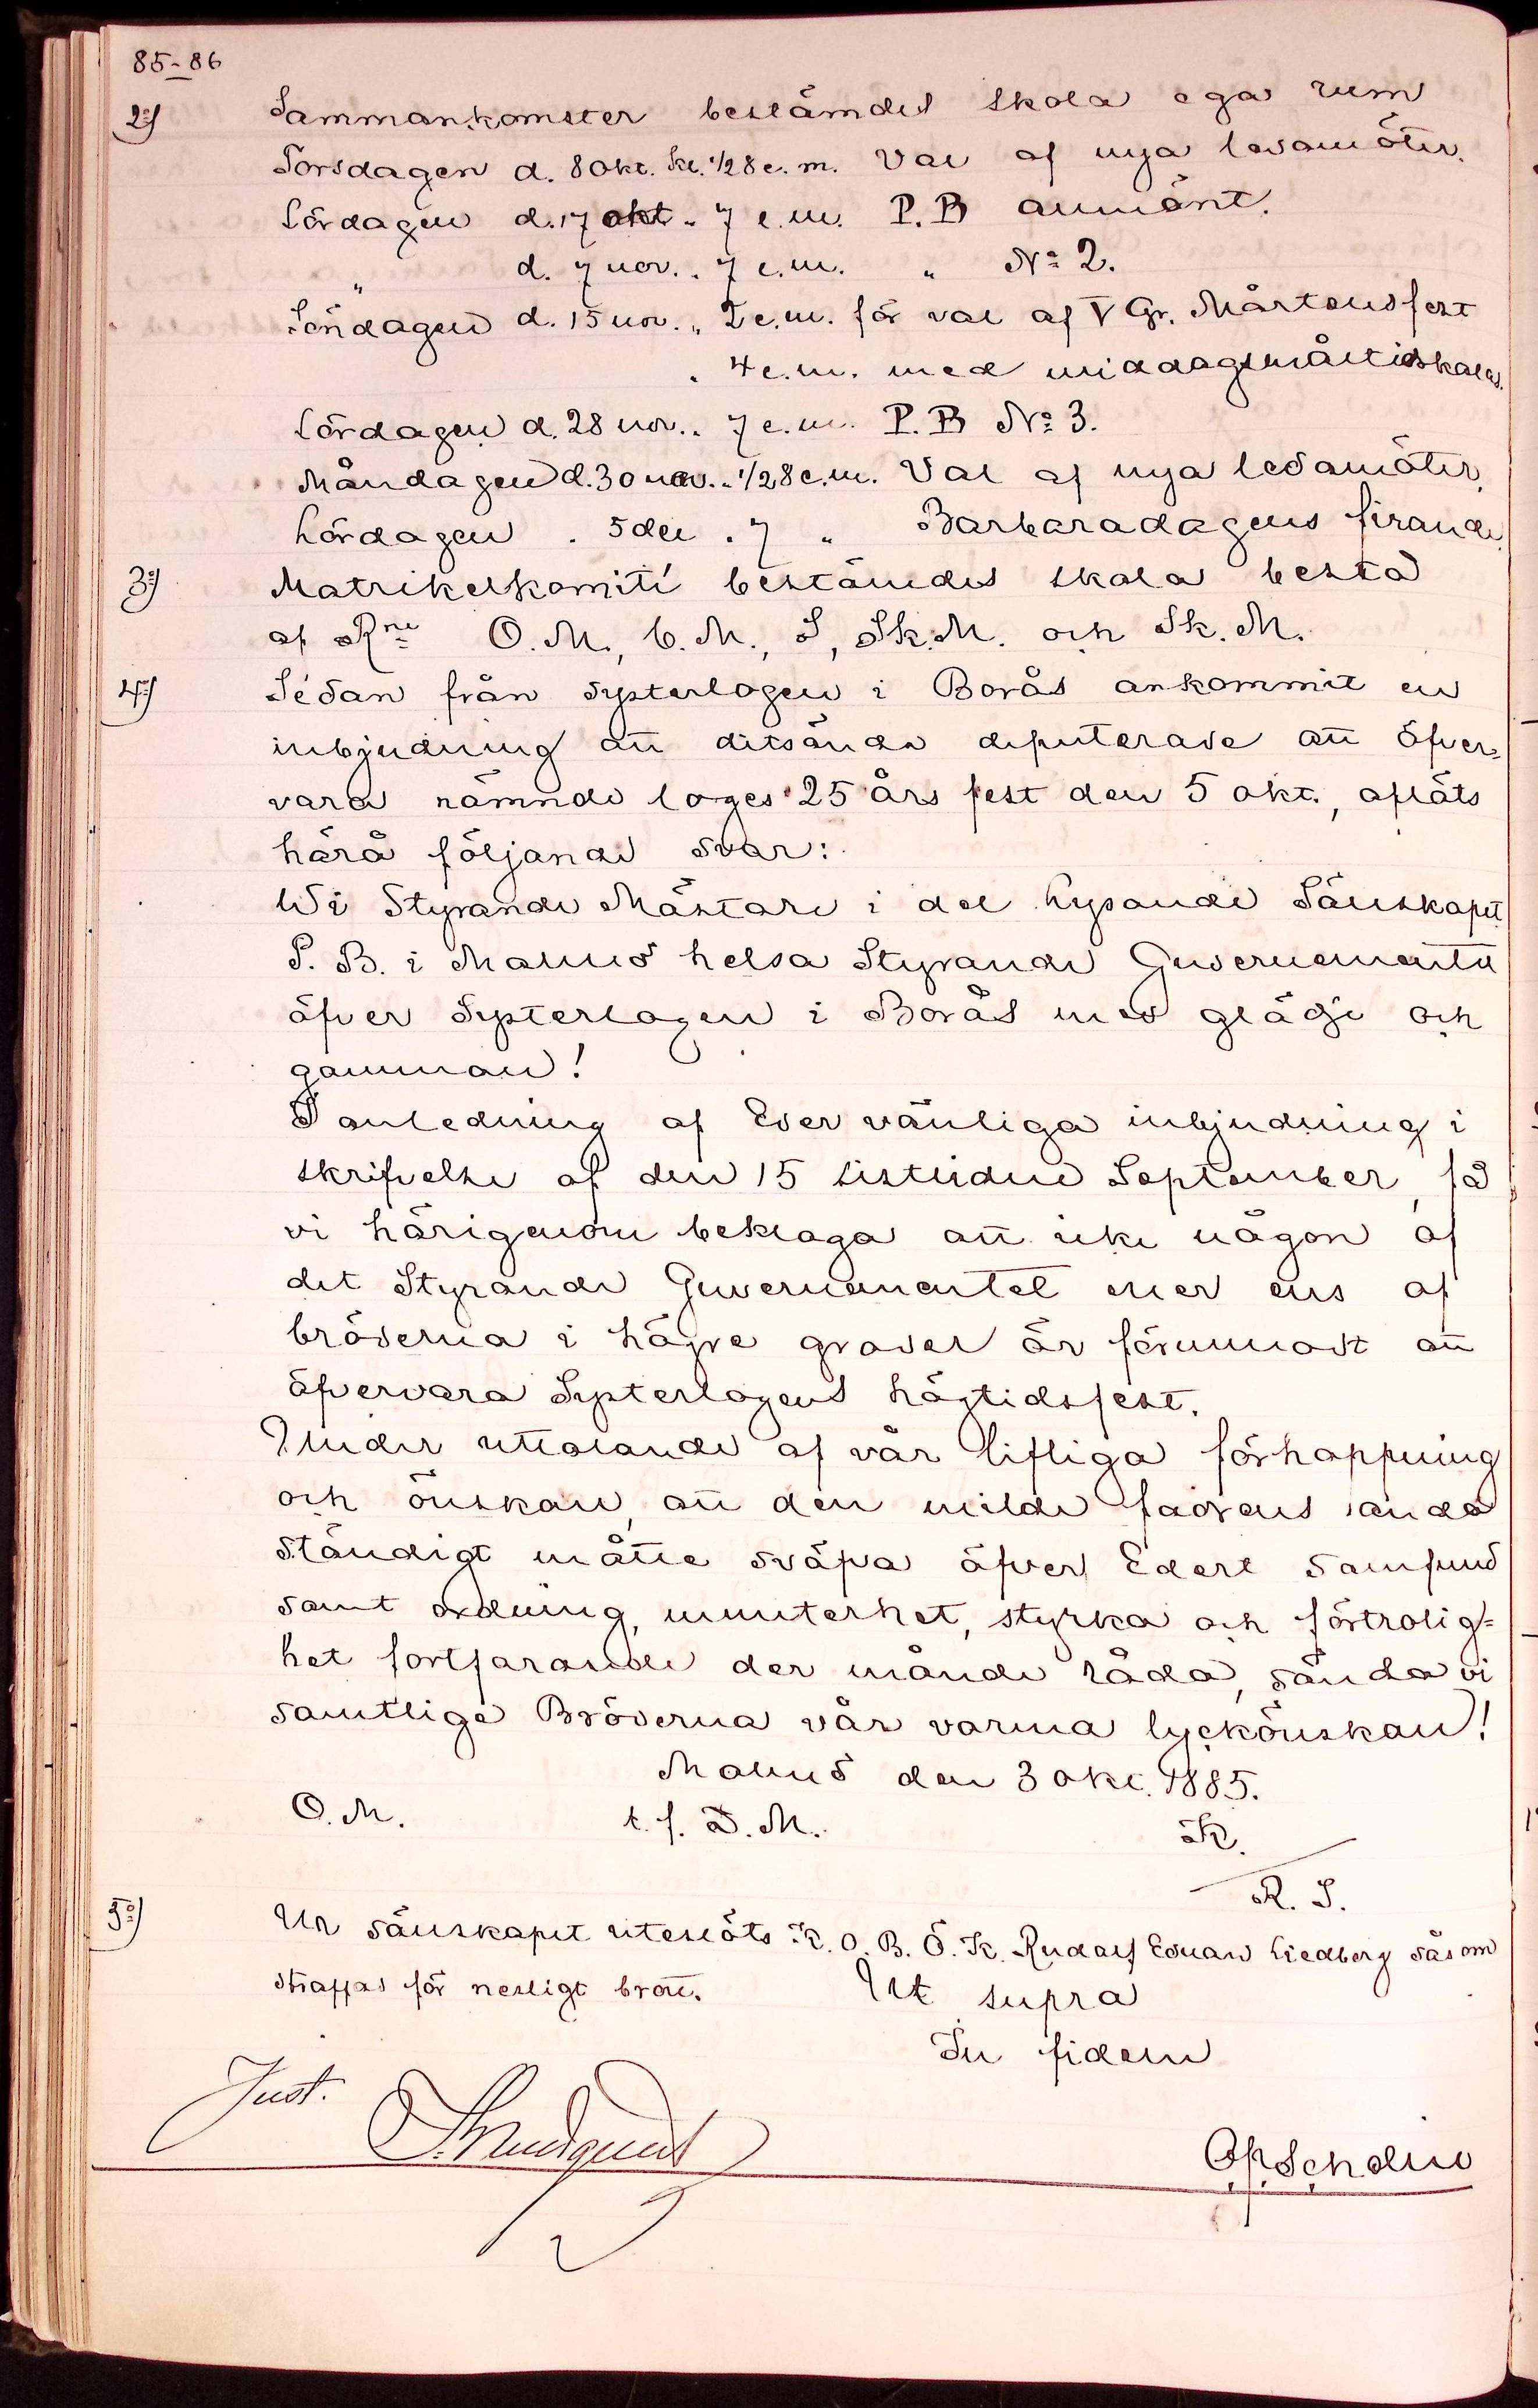 85-86
2:) Sammankomster bestämdes skola ega rum
Torsdagen d. 8 okt. kl. 1/2 8 e. m. Val af nya ledamöter.
Lördagen d. 17 okt. „ 7 e. m. P. B allmänt.
„ d. 7 nov. „ 7 e. m. „ No 2.
Söndagen d. 15 nov. „ 2 e. m. för val af V Gr. Mårtensfest
„ 4 e. m. med middagsmåltidskalas.
Lördagen d. 28 nov. „ 7 e. m. P. B No 3.
Måndagen d. 30 nov. „ 1/2 8 e. m. Val af nya ledamöter.
Lördagen „ 5 dec „ 7 „ Barbaradagens firande.
3:) Matrikelkomité bestämdes skola bestå
af Rne O. M., C. M., S, Sk. M. och Sk. M.
4:) Sedan från Systerlogen i Borås ankommit en
inbjudning att ditsända deputerade att öfver=
vara nämnde loges 25 års fest den 5 okt., afläts
härå följande svar:
Wi Styrande Mästare i det Lysande Sällskapet
P. B. i Malmö helsa Styrande Guvernementet
öfver Systerlogen i Borås med glädje och
gamman!
I anledning af Eder vänliga inbjudning i
skrifvelse af den 15 sistlidne September, få
vi härigenom beklaga att icke någon af
det Styrande Guvernementet eller ens af
bröderna i högre grader är förunnadt att
öfvervara Systerlogens högtidsfest.
Under uttalande af vår lifliga förhoppning
och önskan, att den milde fadrens anda
ständigt måtte sväfva öfver Edert samfund
samt ordning, munterhet, styrka och förtrolig=
het fortfarande der månde råda, sända vi
samtlige Bröderna vår varma lyckönskan!
Malmö den 3 okt. 1885.
O. M. t. f. D. M. K.
R. S.
5:) Ur sällskapet uteslöts K. O. B. Ö. K. Rudolf Eduard Liedberg såsom
straffad för nesligt brott. Ut supra
In fidem
Just.